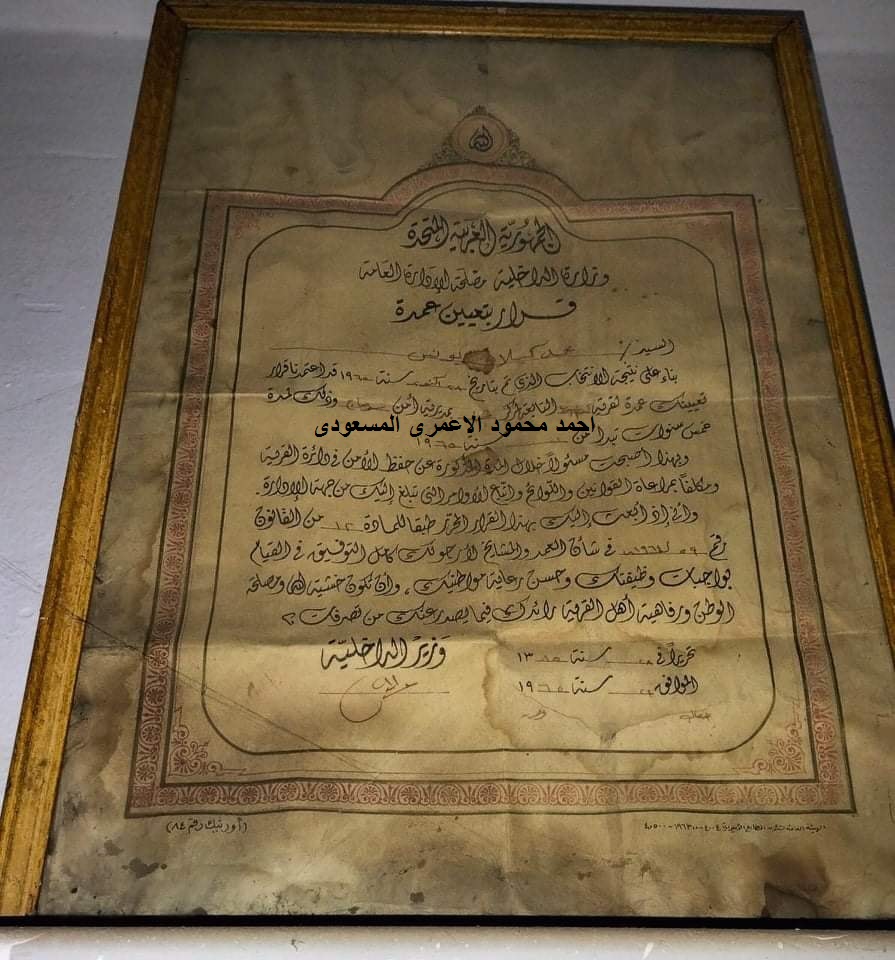 الله
الجمهورية العربية المتحدة
وزارة الداخلية مصلحة الإدارة العامة
قرار بتعيين عمدة
السيد / يونس
بناء على نتيجة الانتخاب الذي تم بتاريخ سنة ١٩٦٥ قد اعتمدنا قرار
تعيينك عمدة لقرية التابعة لمركز بمديرية أمن سوهاج وذلك لمدة
احمد محمود الاعمرى المسعودى
خمس سنوات تبدأ من سنة ١٩٦٥
وبهذا أصبحت مسئولاً خلال المدة المذكورة عن حفظ الأمن في دائرة القرية
ومكلفاً بمراعاة القوانين واللوائح واتباع الأوامر التي تبلغ إليك من جهة الإدارة .
وإني إذ أبعث إليك بهذا القرار المحرر طبقا للمادة ١٢ من القانون
رقم ٥٩ لـ ١٩٦٤ في شأن العمد والمشايخ لأرجو لك كامل التوفيق في القيام
بواجبات وظيفتك وحسن رعاية مواطنيك ، وأن تكون خشية الله ومصلحة
الوطن ورفاهية أهل القرية رائدك فيما يصدر عنك من تصرفات ؟
تحريراً في سنة ١٣٨٥
وزير الداخلية
الموافق سنة ١٩٦٥
(أورنيك رقم ٨٤)